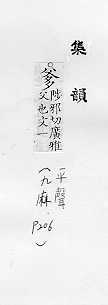 集韻
。爹 陟邪切廣雅
父也文一
(平聲
九麻.
P206)